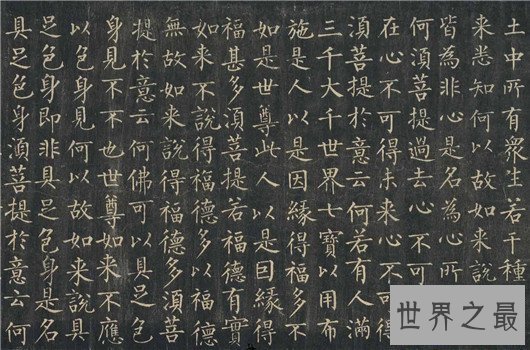 土中所有眾生若干種
来悉知何以故如来說
皆為非心是名為心所
何須菩提過去心不可
在心不可得未来心不可得
須菩提於意云何若有人滿
三千大千世界七寶以用布
施是人以是因緣得福多不
如是世尊此人以是因緣得
福甚多須菩提若福德有實
如来不說得福德多以福德
無故如来說得福德多須菩
提於意云何佛可以具足色
身見不不也世尊如来不應
以色身見何以故如来說具
足色身即非具足色身是名
具足色身須菩提於意云何
世界之最